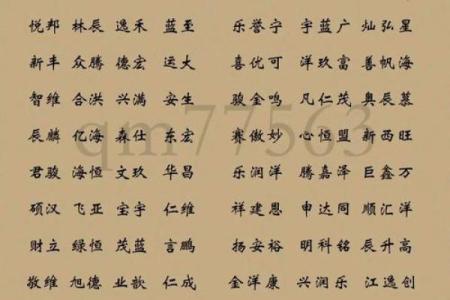 悦邦 林辰 逸禾 蓝至 乐誉宁 宇蓝广 灿弘星
新丰 众腾 德宏 运大 喜优可 洋玖富 善帆海
智维 合洪 兴满 安生 骏金鸣 凡仁茂 奥辰慕
辰麟 亿海 森仕 东宏 赛傲妙 心恒盟 新西旺
qm77563
君骏 海恒 文玖 华昌 乐润洋 腾嘉泽 巨鑫万
硕汉 飞亚 宝宇 仁维 祥建恩 申达同 顺汇洋
财立 绿恒 茂蓝 言鹏 扬安裕 明科铭 辰升高
敬维 旭德 业歆 仁成 金洋康 兴润乐 江逸创